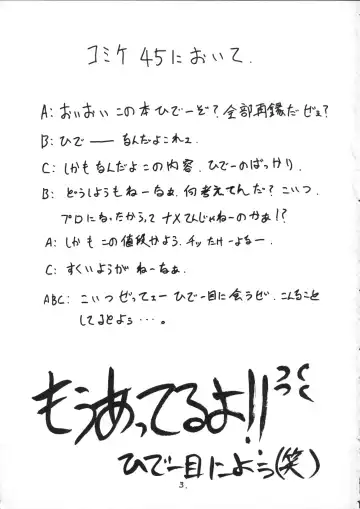 コミケ 45において.
A: おいおいこの本ひでーぞ?全部再録だぜぇ?
B: ひでーーなんだよこれェ
C: しかもなんだよこの内容、ひでーのばっかり、
B: どうしようもねーなぁ、何考えてんだ?こいつ、
プロになったからってナメてんじゃねーのかぁ!?
A: しかもこの値段かよう、チッたけーよなー.
C: すくいようがねーなぁ、
ABC: こいつぜってェーひでー目に会うぜ、こんなこと
してるとよぅ・・・。
もうあってるよ!!
ひでー目によう(笑)
3.